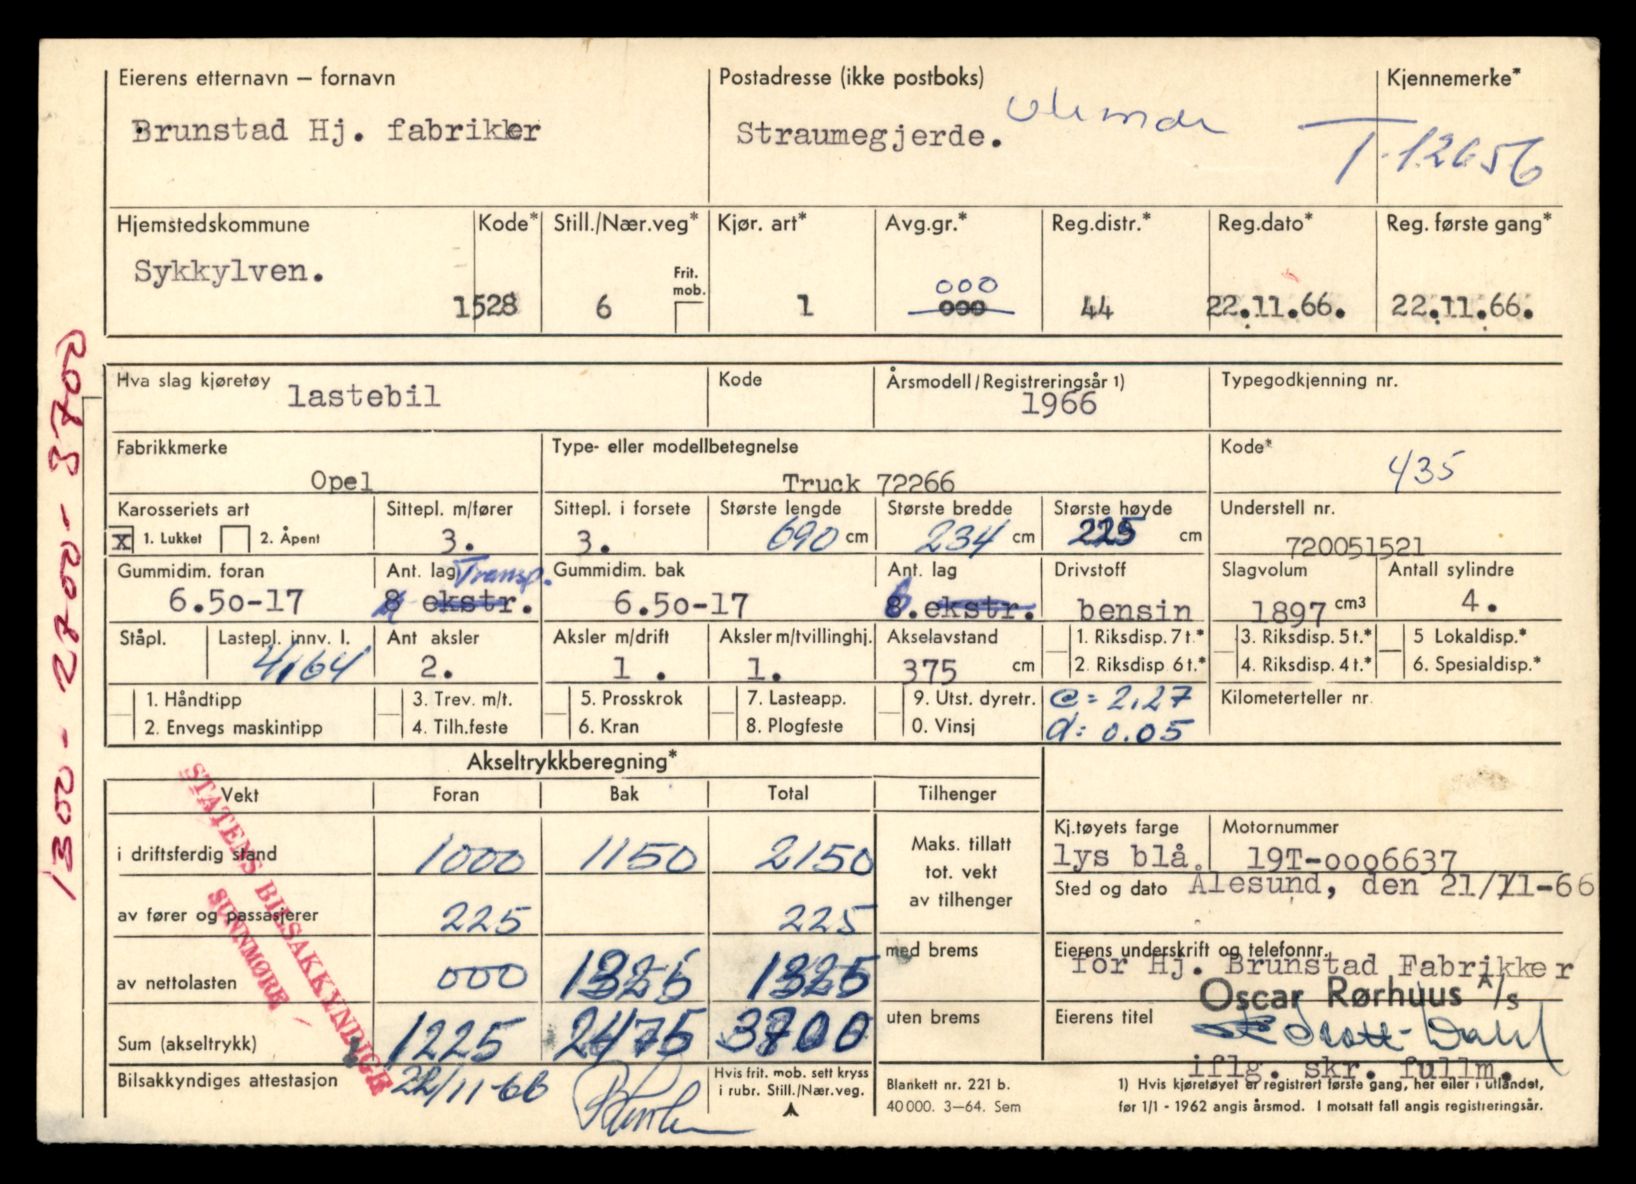 Eierens etternavn – fornavn
Brunstad Hj. fabrikker
Postadresse (ikke postboks)
Straumegjerde.
Kjennemerke*
T-12656
Hjemstedskommune
Sykkylven.
Kode*
1528
Still./Nær.veg*
6
Frit. mob.
Kjør. art*
1
Avg.gr.*
000
000
Reg.distr.*
44
Reg.dato*
22.11.66.
Reg. første gang*
22.11.66.
Hva slag kjøretøy
lastebil
Kode
Årsmodell/Registreringsår 1)
1966
Typegodkjenning nr.
Fabrikkmerke
Opel
Type- eller modellbetegnelse
Truck 72266
Kode*
435
Karosseriets art
X 1. Lukket 2. Åpent
Sittepl. m/fører
3.
Sittepl. i forsete
3.
Største lengde
690 cm
Største bredde
234 cm
Største høyde
225 cm
Understell nr.
720051521
Gummidim. foran
6.50-17
Ant. lag
Transp.
8 ekstr.
Gummidim. bak
6.50-17
Ant. lag
8.ekstr.
Drivstoff
bensin
Slagvolum
1897 cm3
Antall sylindre
4.
Ståpl.
Lastepl. innv. l.
4,64
Ant aksler
2.
Aksler m/drift
1 .
Aksler m/tvillinghj.
1.
Akselavstand
375 cm
1. Riksdisp. 7 t.*
2. Riksdisp 6 t.*
3. Riksdisp. 5 t.*
4. Riksdisp. 4 t.*
5 Lokaldisp.*
6. Spesialdisp.*
1. Håndtipp
2. Envegs maskintipp
3. Trev. m/t.
4. Tilh.feste
5. Prosskrok
6. Kran
7. Lasteapp.
8. Plogfeste
9. Utst. dyretr.
0. Vinsj
@ = 2,27
d: 0.05
Kilometerteller nr.
1300 - 2700 - 3700
Akseltrykkberegning*
Vekt Foran Bak Total Tilhenger
i driftsferdig stand 1000 1150 2150
av fører og passasjerer 225 225
av nettolasten 000 1325 1325
Sum (akseltrykk) 1225 2475 3700
Maks. tillatt
tot. vekt
av tilhenger
med brems
uten brems
STATENS BILSAKKYNDIGE
SUNNMØRE
Kj.tøyets farge
lys blå
Motornummer
19T-0006637
Sted og dato Ålesund, den 21/11-66
Eierens underskrift og telefonnr.
for Hj. Brunstad Fabrikker
Oscar Rørhuus A/s
Eierens titel
iflg. skr. fullm.
Bilsakkyndiges attestasjon
22/11-66
Hvis frit. mob. sett kryss
i rubr. Still./Nær.veg.
Blankett nr. 221 b.
40 000. 3–64. Sem
1) Hvis kjøretøyet er registrert første gang, her eller i utlandet,
før 1/1 - 1962 angis årsmod. I motsatt fall angis registreringsår.